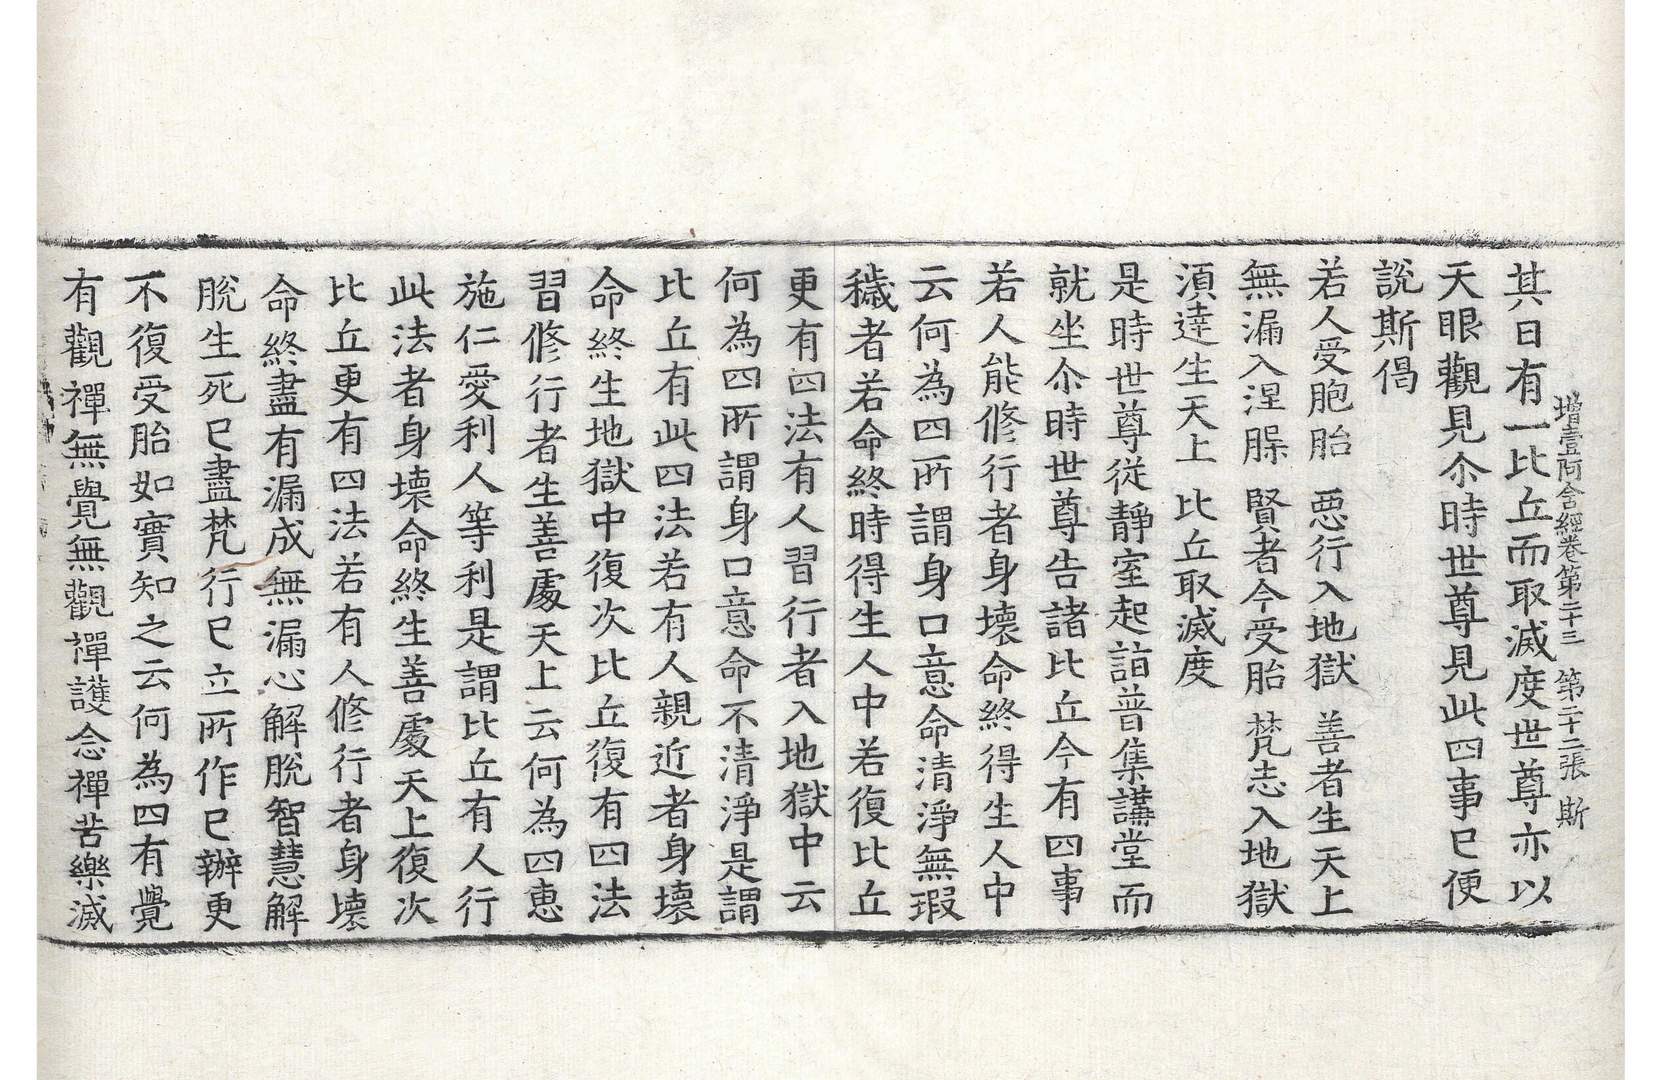 增壹阿含經卷第二十三 第二十二張 斯
其日有一比丘而取滅度世尊亦以
天眼觀見尒時世尊見此四事已便
說斯偈
若人受胞胎 惡行入地獄 善者生天上
無漏入涅槃 賢者今受胎 梵志入地獄
湏達生天上 比丘取滅度
是時世尊從靜室起詣普集講堂而
就坐尒時世尊告諸比丘今有四事
若人能修行者身壞命終得生人中
云何為四所謂身口意命清淨無瑕
穢者若命終時得生人中若復比丘
更有四法有人習行者入地獄中云
何為四所謂身口意命不清淨是謂
比丘有此四法若有人親近者身壞
命終生地獄中復次比丘復有四法
習修行者生善處天上云何為四惠
施仁愛利人等利是謂比丘有人行
此法者身壞命終生善處天上復次
比丘更有四法若有人修行者身壞
命終盡有漏成無漏心解脫智慧解
脫生死已盡梵行已立所作已辦更
不復受胎如實知之云何為四有覺
有觀禪無覺無觀禪護念禪苦樂滅